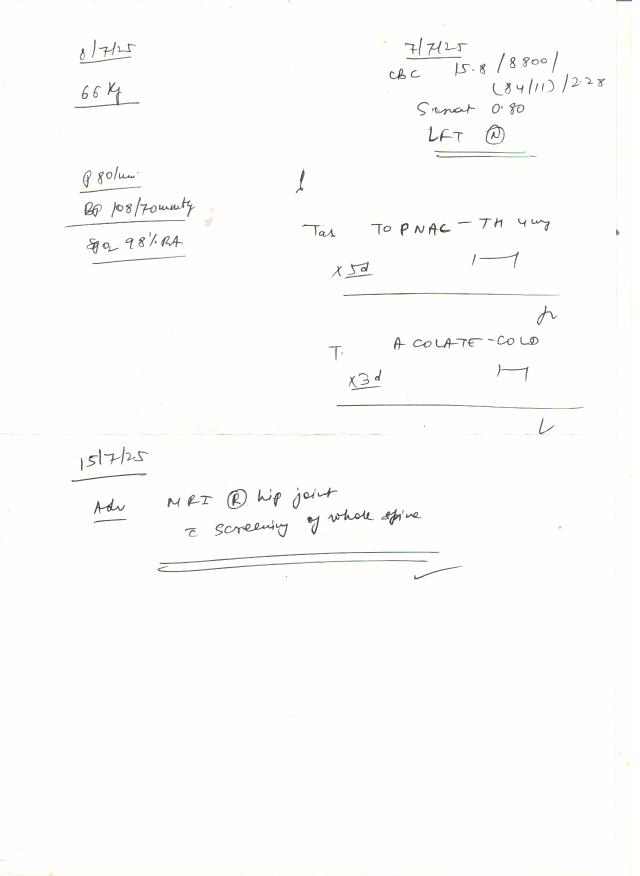 8/7/25
66 Kg
7/7/25
CBC 15.8 / 8800 /
(84/11) / 2.28
S creat 0.80
LFT (N)
P 80/min
BP 108/70 mmHg
SpO2 98% RA
Tab TOPNAC - TH 4mg
x 5d
T. ACOLATE - COLD
x 3d
15/7/25
Adv MRI (R) hip joint
c̄ screening of whole spine